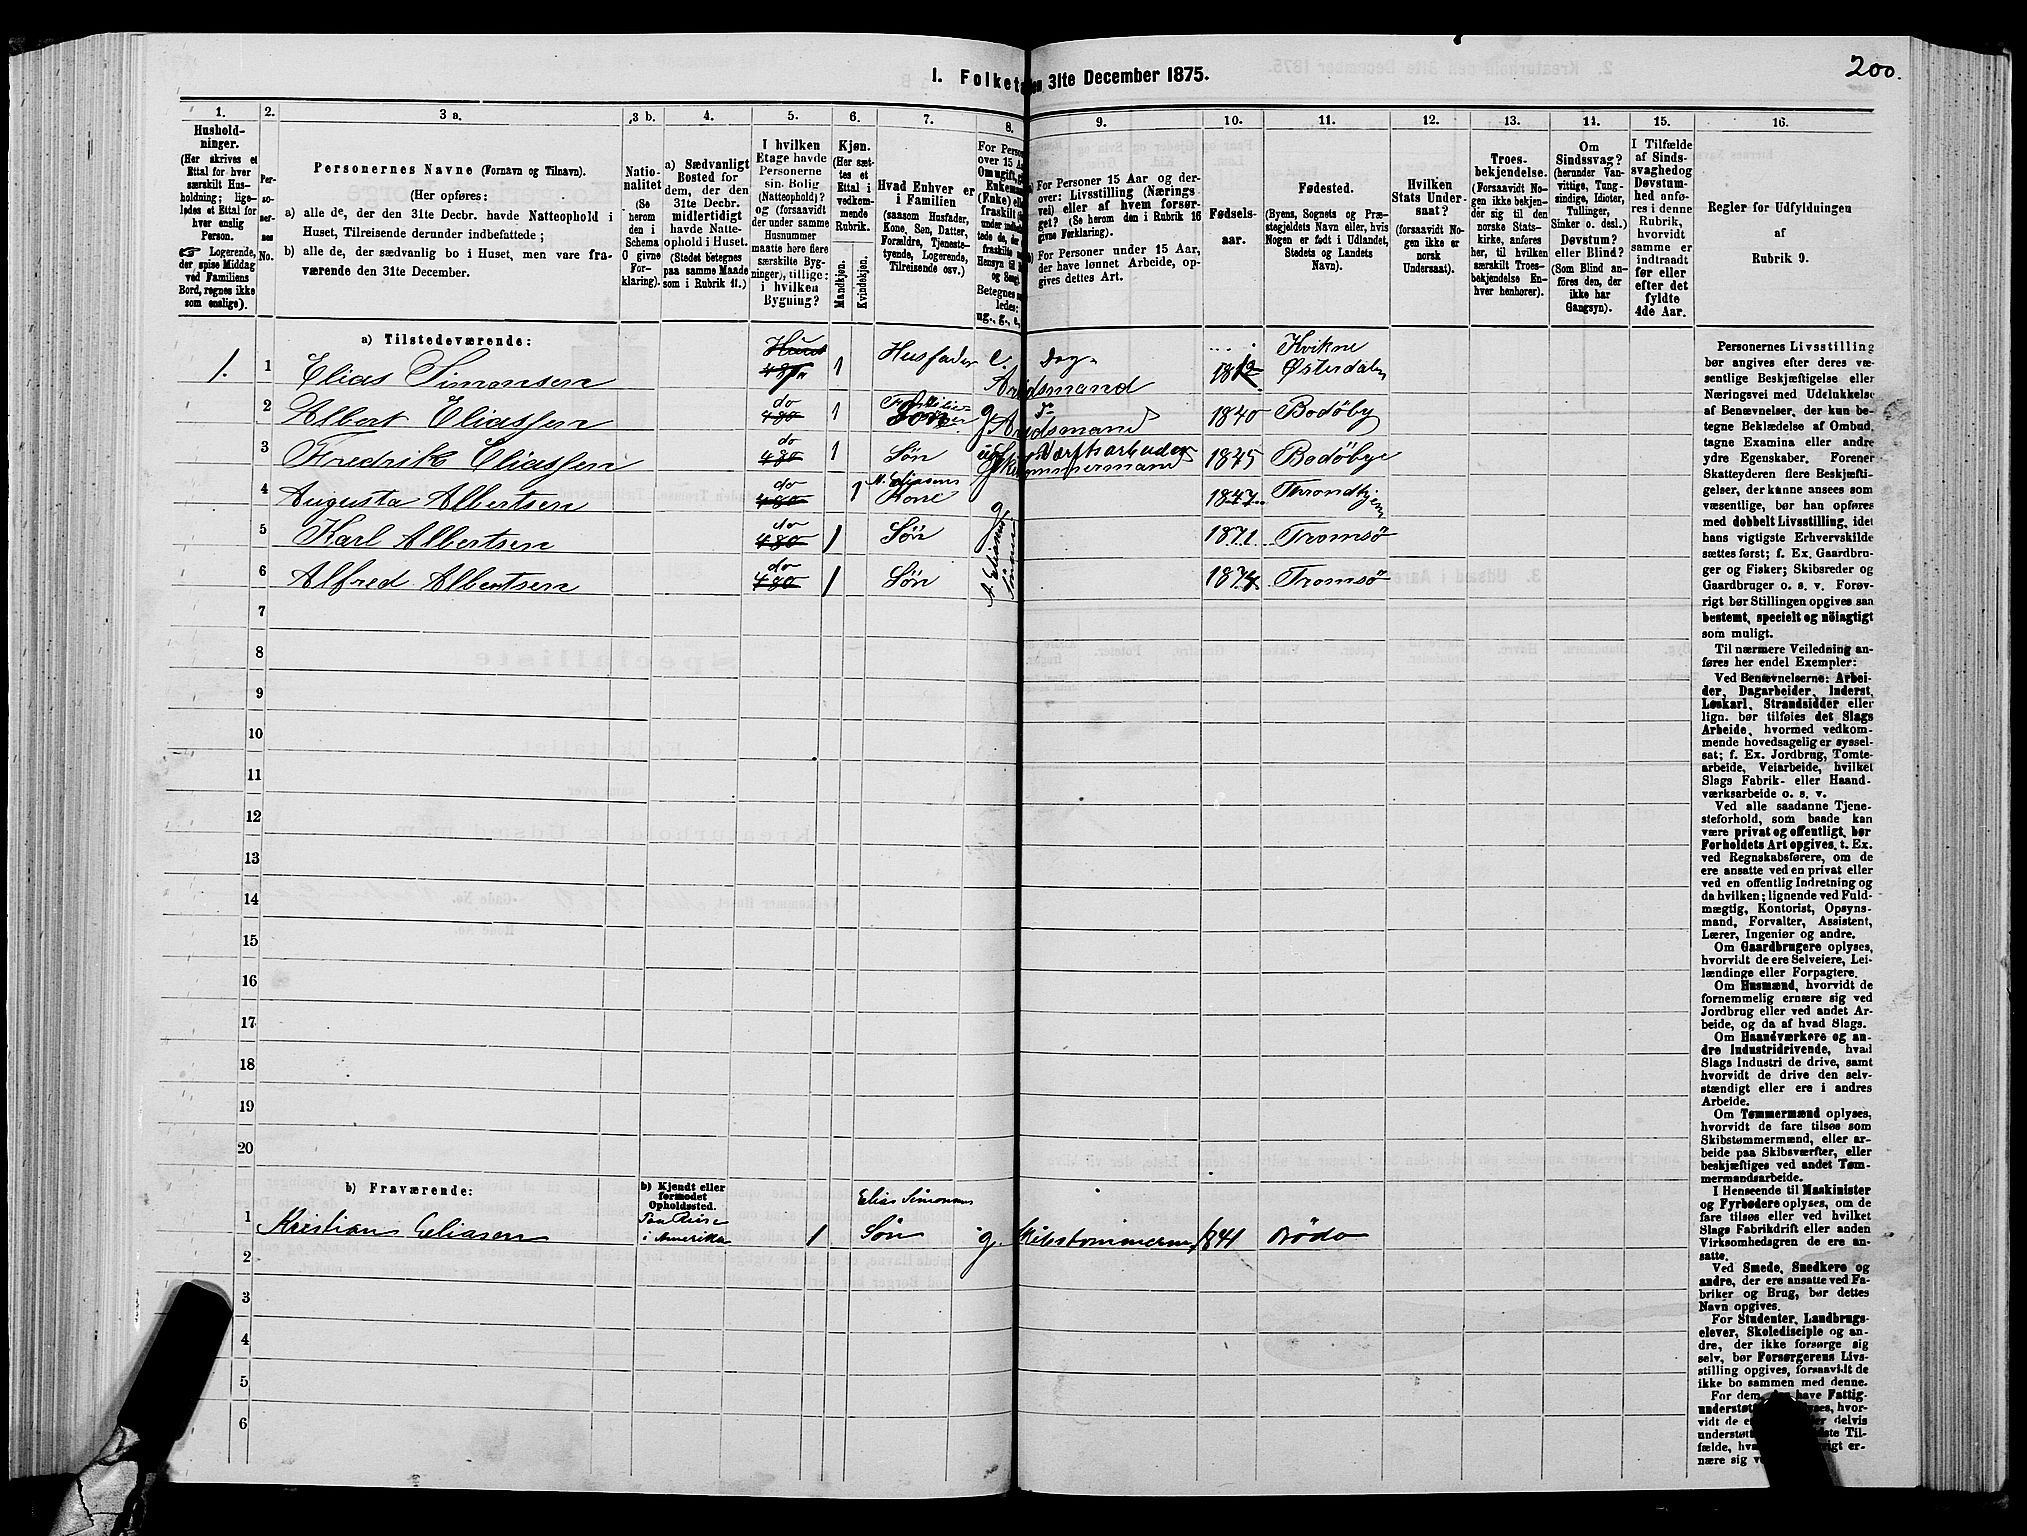 200.
I. Folketa en 31te December 1875.
1. 2. 3 a. 3 b. 4. 5. 6. 7. 8. 9. 10. 11. 12. 13. 14. 15. 16.
Hushold-
ninger.
(Her skrives et
Ettal for hver
særskilt Hus-
holdning; lige-
ledes et Ettal for
hver enslig
Person.
☞ Logerende,
der spise Middag
ved Familiens
Bord, regnes ikke
som enslige).
Per-
so-
ner-
nes
No.
Personernes Navne (Fornavn og Tilnavn).
(Her opføres:
a) alle de, der den 31te Decbr. havde Natteophold i
Huset, Tilreisende derunder indbefattede;
b) alle de, der sædvanlig bo i Huset, men vare fra-
værende den 31te December.
Natio-
nalitet
(Se
herom
den i
Schema
O givne
For-
klaring).
a) Sædvanligt
Bosted for
dem, der den
31te Decbr.
midlertidigt
havde Natte-
ophold i Huset.
(Stedet betegnes
paa samme Maade
som i Rubrik 11.)
I hvilken
Etage havde
Personerne
sin Bolig
(Natteophold)?
og (forsaavidt
der under samme
Husnummer
maatte høre flere
særskilte Byg-
ninger), tillige:
i hvilken
Bygning?
Kjøn.
(Her sæt-
tes et
Ettal i
vedkom-
mende
Rubrik.
Mandkjøn.
Kvindekjøn.
Hvad Enhver er
i Familien
(saasom Husfader,
Kone, Søn, Datter,
Forældre, Tjeneste-
tyende, Logerende,
Tilreisende osv.)
For Perso
over 15 A
Om ugift, g
Enkemand
(Enke) ell
fraskilt (
under indb
tede de, d
fraskilte
Hensyn til
og Seng).
Betegnes
ledes:
ug., g., e.,
a) For Personer 15 Aar og der-
over: Livsstilling (Nærings
vei) eller af hvem forsør-
get? (Se herom den i Rubrik 16
givne Forklaring).
b) For Personer under 15 Aar,
der have lønnet Arbeide, op-
gives dettes Art.
Fødsels-
aar.
Fødested.
(Byens, Sognets og Præ-
stegjeldets Navn eller, hvis
Nogen er født i Udlandet,
Stedets og Landets
Navn).
Hvilken
Stats Under-
saat?
(forsaavidt No-
gen ikke er
norsk
Undersaat).
Troes-
bekjendelse.
(Forsaavidt No-
gen ikke bekjen-
der sig til den
norske Stats-
kirke, anføres
her, til hvilken
særskilt Troes-
bekjendelse En-
hver henhører).
Om
Sindssvag?
(herunder Van-
vittige, Tung-
sindige, Idioter,
Tullinger,
Sinker o. desl.)
Døvstum?
eller Blind?
(Som Blind an-
føres den, der
ikke har
Gangsyn).
I Tilfælde
af Sinds-
svaghed og
Døvstum-
hed anfø-
res i denne
Rubrik,
hvorvidt
samme er
indtraadt
før eller
efter det
fyldte
4de Aar.
Regler for Udfyldningen
af
Rubrik 9.
a) Tilstedeværende:
1. 1 Elias Simonsen 1 Husfader e. Dag-
Arbdsmand 1812 Kvikne
Østerdalen
2 Albert Eliassen do 480 1 g do
Arbdsmand 1840 Bodøby
3 Fredrik Eliassen do 480 1 Søn ug Værftsarbeider
1845 Bodøbye
4 Augusta Albertsen do 480 1 A. Eliasens
Kone g 1847 Throndhjem
5 Karl Albertsen do 480 1 Søn 1871 Tromsø
6 Alfred Albertsen do 480 1 Søn A Eliasens
Sønner 1874 Tromsø
7
8
9
10
11
12
13
14
15
16
17
18
19
20
b) Fraværende:
b) Kjendt eller
formodet
Opholdssted.
1 Kristian Eliasen Paa Reise
i Amerika 1 Elias Simonsens
Søn g. Skibstømmerm 1841 Bodø
2
3
4
5
6
Personernes Livsstilling
bør angives efter deres væ-
sentlige Beskjæftigelse eller
Næringsvei med Udelukkelse
af Benævnelser, der kun be-
tegne Beklædelse af Ombud,
tagne Examina eller andre
ydre Egenskaber. Forener
Skatteyderen flere Beskjæfti-
gelser, der kunne ansees som
væsentlige, bør han opføres
med dobbelt Livsstilling, idet
hans vigtigste Erhvervskilde
sættes først; f. Ex. Gaardbru-
ger og Fisker; Skibsreder og
Gaardbruger o. s. v. Forøv-
rigt bør Stillingen opgives saa
bestemt, specielt og nöiagtigt
som muligt.
Til nærmere Veiledning an-
føres her endel Exempler:
Ved Benævnelserne: Arbei-
der, Dagarbeider, Inderst,
Løskarl, Strandsidder eller
lign. bør tilføies det Slags
Arbeide, hvormed vedkom-
mende hovedsagelig er syssel-
sat; f. Ex. Jordbrug, Tomte-
arbeide, Veiarbeide, hvilket
Slags Fabrik- eller Haand-
værksarbeide o. s. v.
Ved alle saadanne Tjene-
steforhold, som baade kan
være privat og offentligt, bør
Forholdets Art opgives. t. Ex.
ved Regnskabsførere, om de
ere ansatte ved en privat eller
ved en offentlig Indretning og
da hvilken; lignende ved Fuld-
mægtig, Kontorist, Opsyns-
mand, Forvalter, Assistent,
Lærer, Ingeniør og andre.
Om Gaardbrugere oplyses,
hvorvidt de ere Selveiere, Lei-
lændinge eller Forpagtere.
Om Husmænd, hvorvidt de
fornemmelig ernære sig ved
Jordbrug eller ved andet Ar-
beide, og da af hvad Slags.
Om Haandværkere og an-
dre Industridrivende, hvad
Slags Industri de drive, samt
hvorvidt de drive den selv-
stændigt eller ere i andres
Arbeide.
Om Tømmermænd oplyses,
hvorvidt de fare tilsøs som
Skibstømmermænd, eller ar-
beide paa Skibsværfter, eller
beskjæftiges ved andet Tøm-
mermandsarbeide.
I Henseende til Maskinister
og Fyrbødere oplyses, om de
fare tilsøs eller ved hvilket
Slags Fabrikdrift eller anden
Virksomhedsgren de ere an-
satte.
Ved Smede, Snedkere og
andre, der ere ansatte ved Fa-
briker og Brug, bør dettes
Navn opgives.
For Studenter, Landbrugs-
elever, Skoledisciple og an-
dre, der ikke forsørge sig
selv, bør Forsørgerens Livs-
stilling opgives, forsaavidt de
ikke bo sammen med denne.
For dem have Fattig-
hvor-
vidt de delvis
understøt Til-
fælde, er-
nære sig